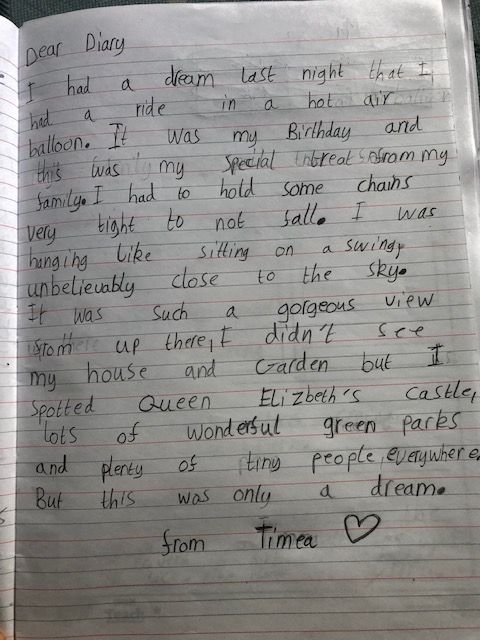 Dear Diary
I had a dream last night that I
had a ride in a hot air
balloon. It was my Birthday and
this was my special treat from my
family. I had to hold some chains
very tight to not fall. I was
hanging like sitting on a swing,
unbelievably close to the sky.
It was such a gorgeous view
from up there, I didn't see
my house and Garden but I
spotted Queen Elizbeth's castle,
lots of wonderful green parks
and plenty of tiny people, everywhere.
But this was only a dream.
from Timea